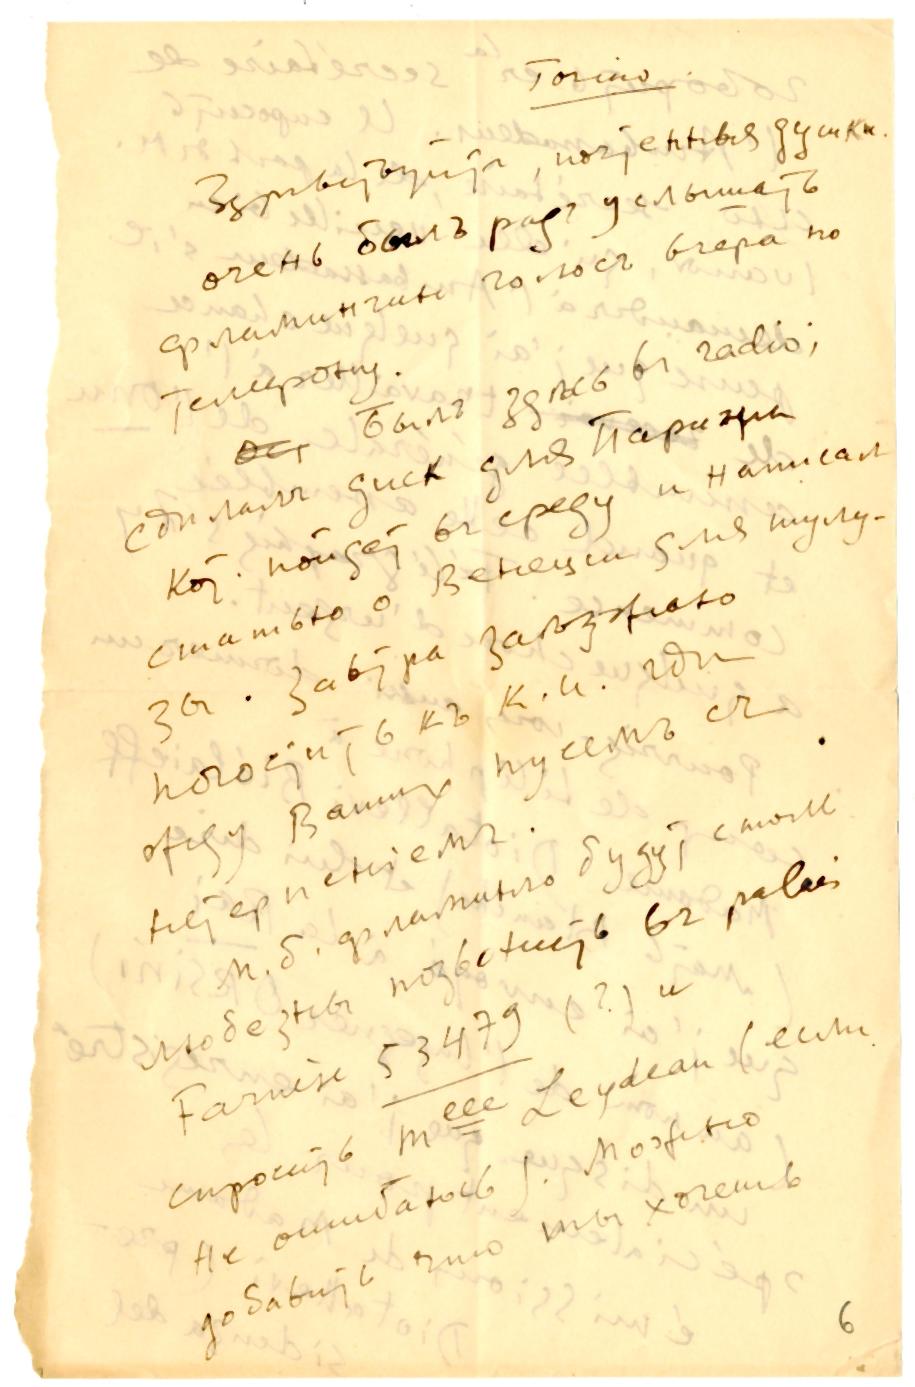 Torino
Здравствуйте, почтенныя душки.
очень былъ радъ услышать
фламингин голосъ вчера по
телефону.
Былъ здѣсь въ radio;
сдѣлалъ диск для Парижа
кот. пойдет въ среду и написал
статью о Венеции для тулу-
зы. Завтра заѣзжаю
погостить къ К.И. гдѣ
жду Вашихъ писемъ съ
нетерпеніемъ.
М.б. фламинго будут столь
любезны позвонить въ palais
Farnèse 53479 (?) и
спросить Mlle Leydeau (если
не ошибаюсь). Можно
добавить что ты хочешь
6